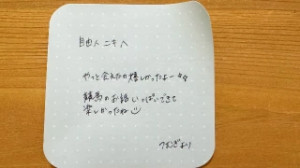 自由人ニキへ
やっと会えたね嬉しかったよー
練馬のお話いっぱいできて
楽しかったね
つむぎより